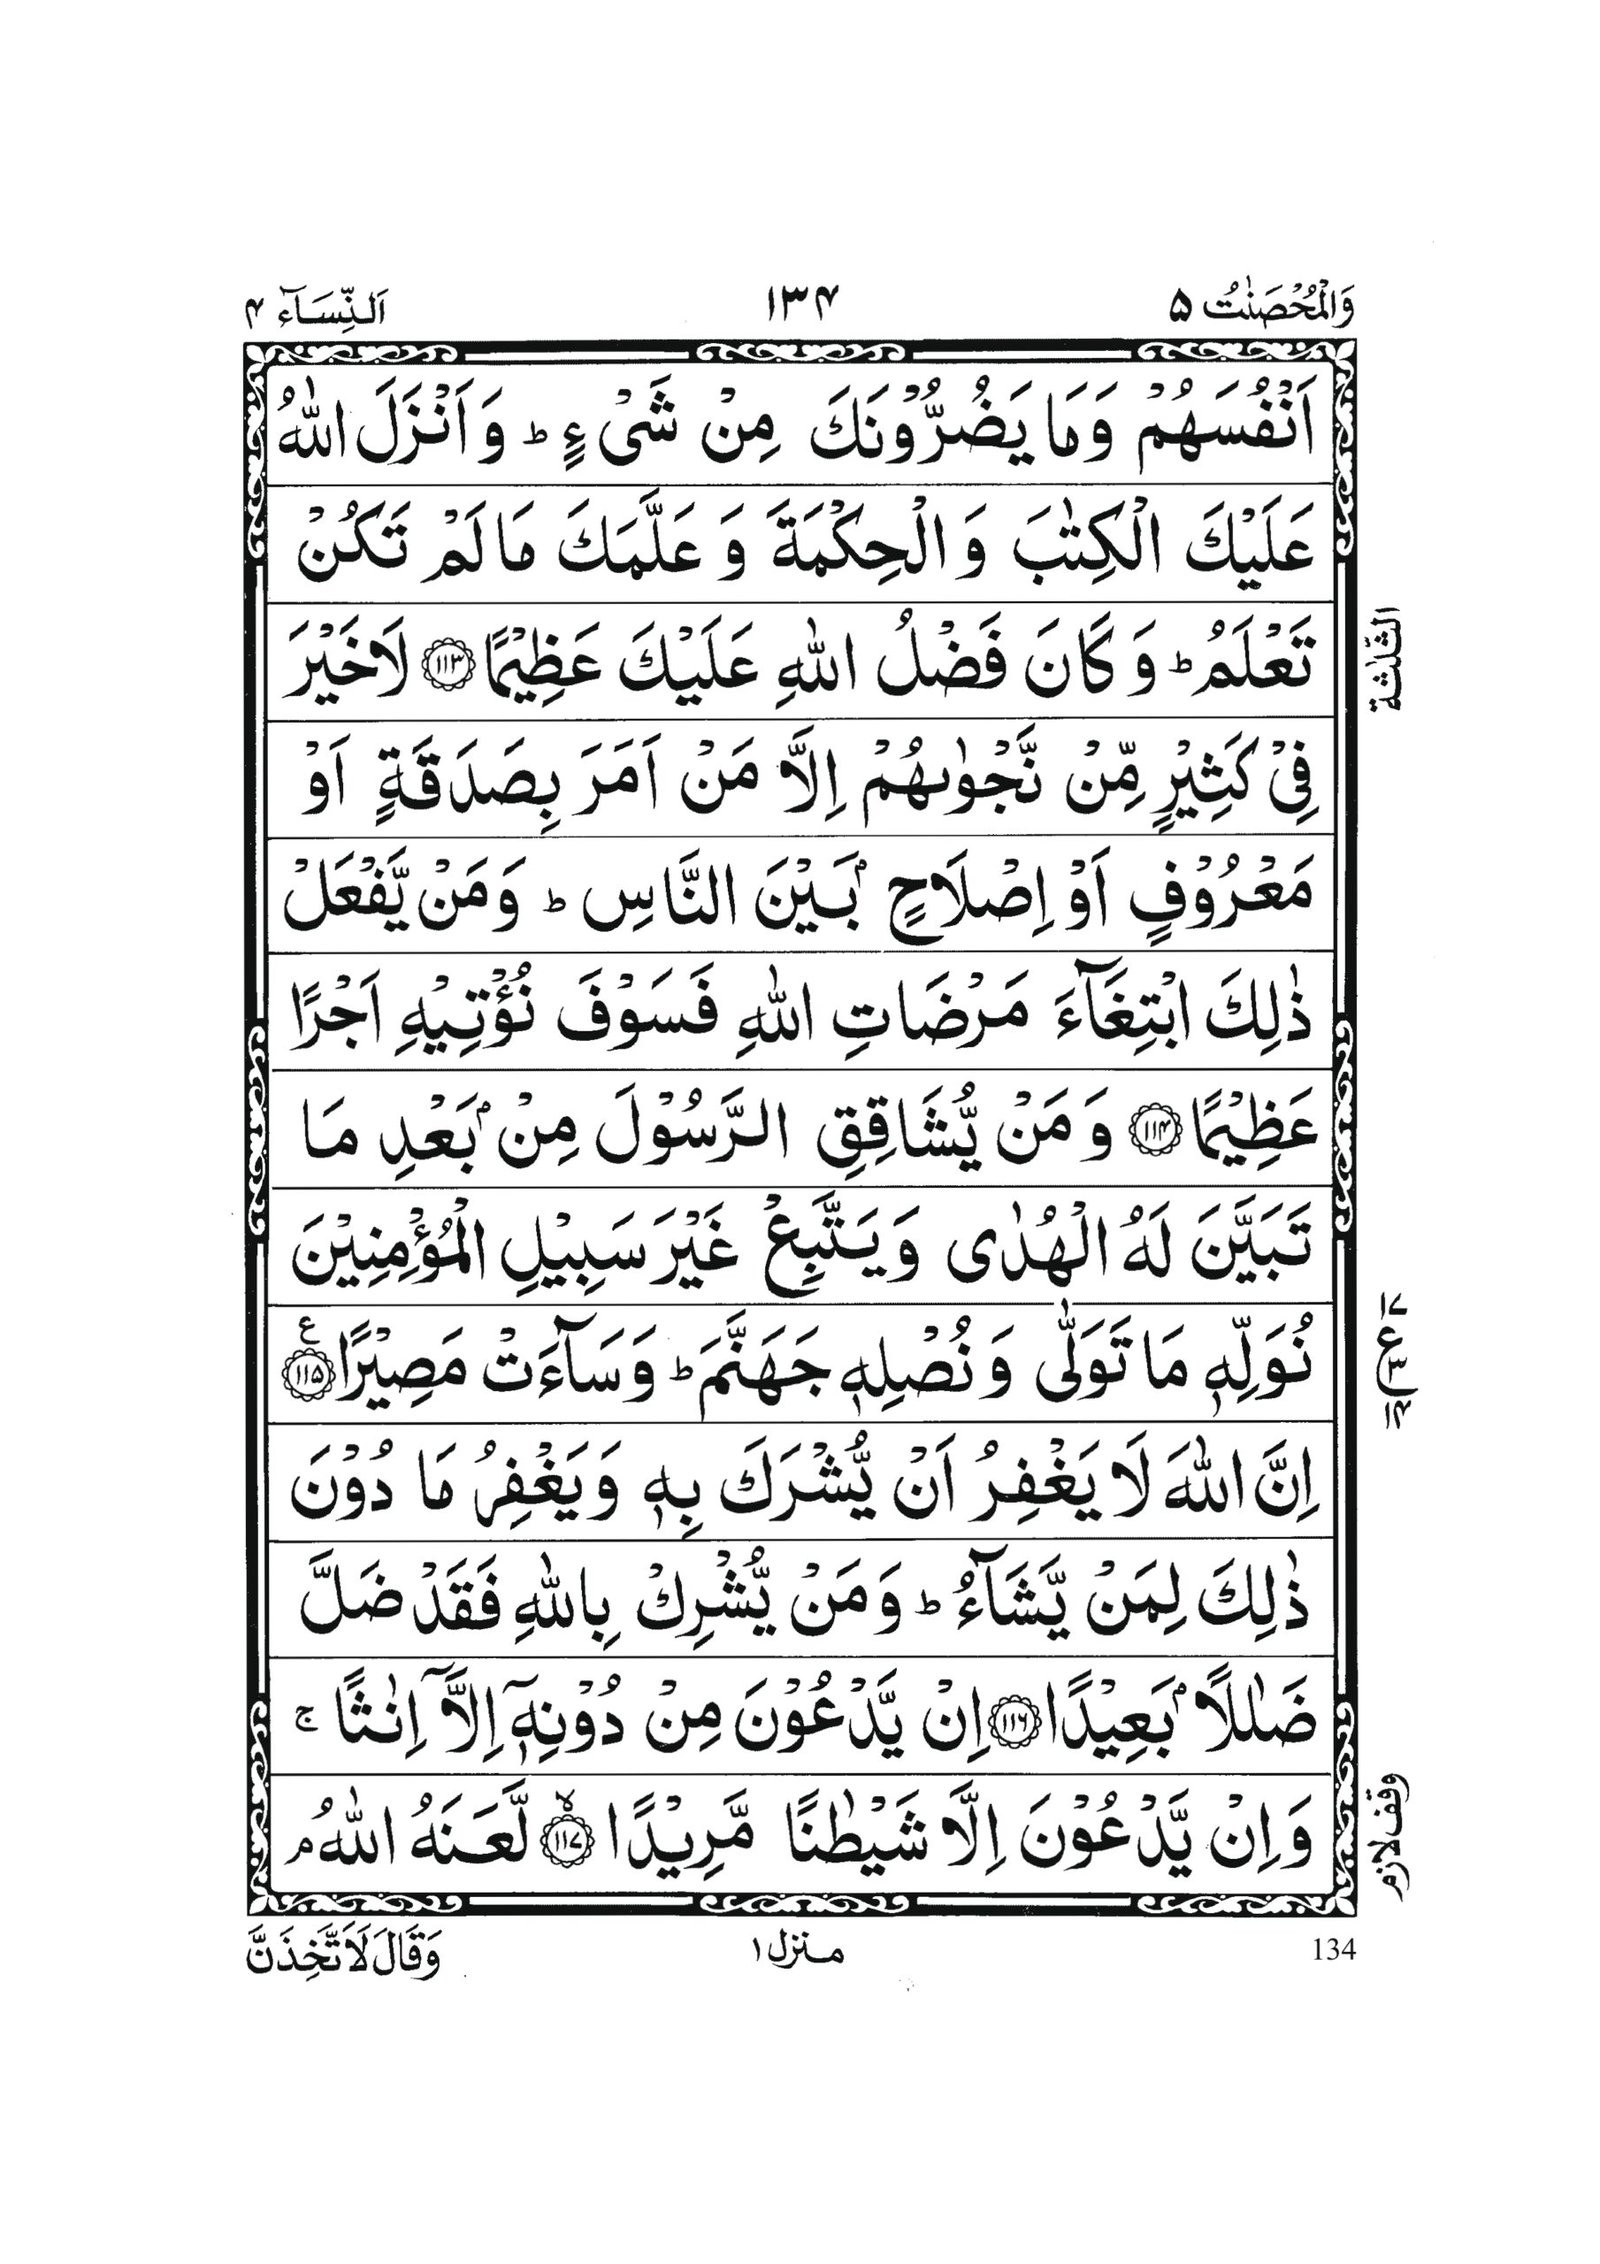 وَالْمُحْصَنٰتُ ۵ ۱۳۴ اَلنِّسَآء ۴
اَنْفُسَهُمْ وَمَا يَضُرُّوْنَكَ مِنْ شَیْءٍ ؕ وَ اَنْزَلَ اللّٰهُ
عَلَيْكَ الْكِتٰبَ وَ الْحِكْمَةَ وَ عَلَّمَكَ مَا لَمْ تَكُنْ
تَعْلَمُ ؕ وَ كَانَ فَضْلُ اللّٰهِ عَلَيْكَ عَظِيْمًا ﴿۱۱۳﴾ لَا خَيْرَ
الثلٰثة
فِیْ كَثِيْرٍ مِّنْ نَّجْوٰىهُمْ اِلَّا مَنْ اَمَرَ بِصَدَقَةٍ اَوْ
مَعْرُوْفٍ اَوْ اِصْلَاحٍۭ بَيْنَ النَّاسِ ؕ وَمَنْ يَّفْعَلْ
ذٰلِكَ ابْتِغَآءَ مَرْضَاتِ اللّٰهِ فَسَوْفَ نُؤْتِيْهِ اَجْرًا
عَظِيْمًا ﴿۱۱۴﴾ وَ مَنْ يُّشَاقِقِ الرَّسُوْلَ مِنْۢ بَعْدِ مَا
تَبَيَّنَ لَهُ الْهُدٰى وَيَتَّبِعْ غَيْرَ سَبِيْلِ الْمُؤْمِنِيْنَ
نُوَلِّهٖ مَا تَوَلّٰى وَ نُصْلِهٖ جَهَنَّمَ ؕ وَسَآءَتْ مَصِيْرًا ﴿۱۱۵﴾ ع
اِنَّ اللّٰهَ لَا يَغْفِرُ اَنْ يُّشْرَكَ بِهٖ وَيَغْفِرُ مَا دُوْنَ
ذٰلِكَ لِمَنْ يَّشَآءُ ؕ وَمَنْ يُّشْرِكْ بِاللّٰهِ فَقَدْ ضَلَّ
ضَلٰلًاۢ بَعِيْدًا ﴿۱۱۶﴾ اِنْ يَّدْعُوْنَ مِنْ دُوْنِهٖۤ اِلَّاۤ اِنٰثًا ۚ
وَاِنْ يَّدْعُوْنَ اِلَّا شَيْطٰنًا مَّرِيْدًا ﴿۱۱۷﴾ ۙ لَّعَنَهُ اللّٰهُ ۘ
وقف لازم
134 منزل ۱ وَقَالَ لَاَتَّخِذَنَّ